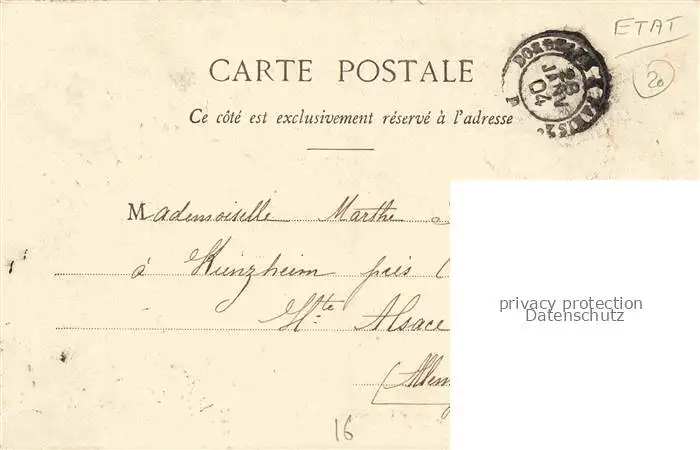 ETAT
20
28
JANV
04
CARTE POSTALE
Ce côté est exclusivement réservé à l'adresse
Mademoiselle Marthe
à Kunzheim près
Hte Alsace
(Allem
privacy protection
Datenschutz
16